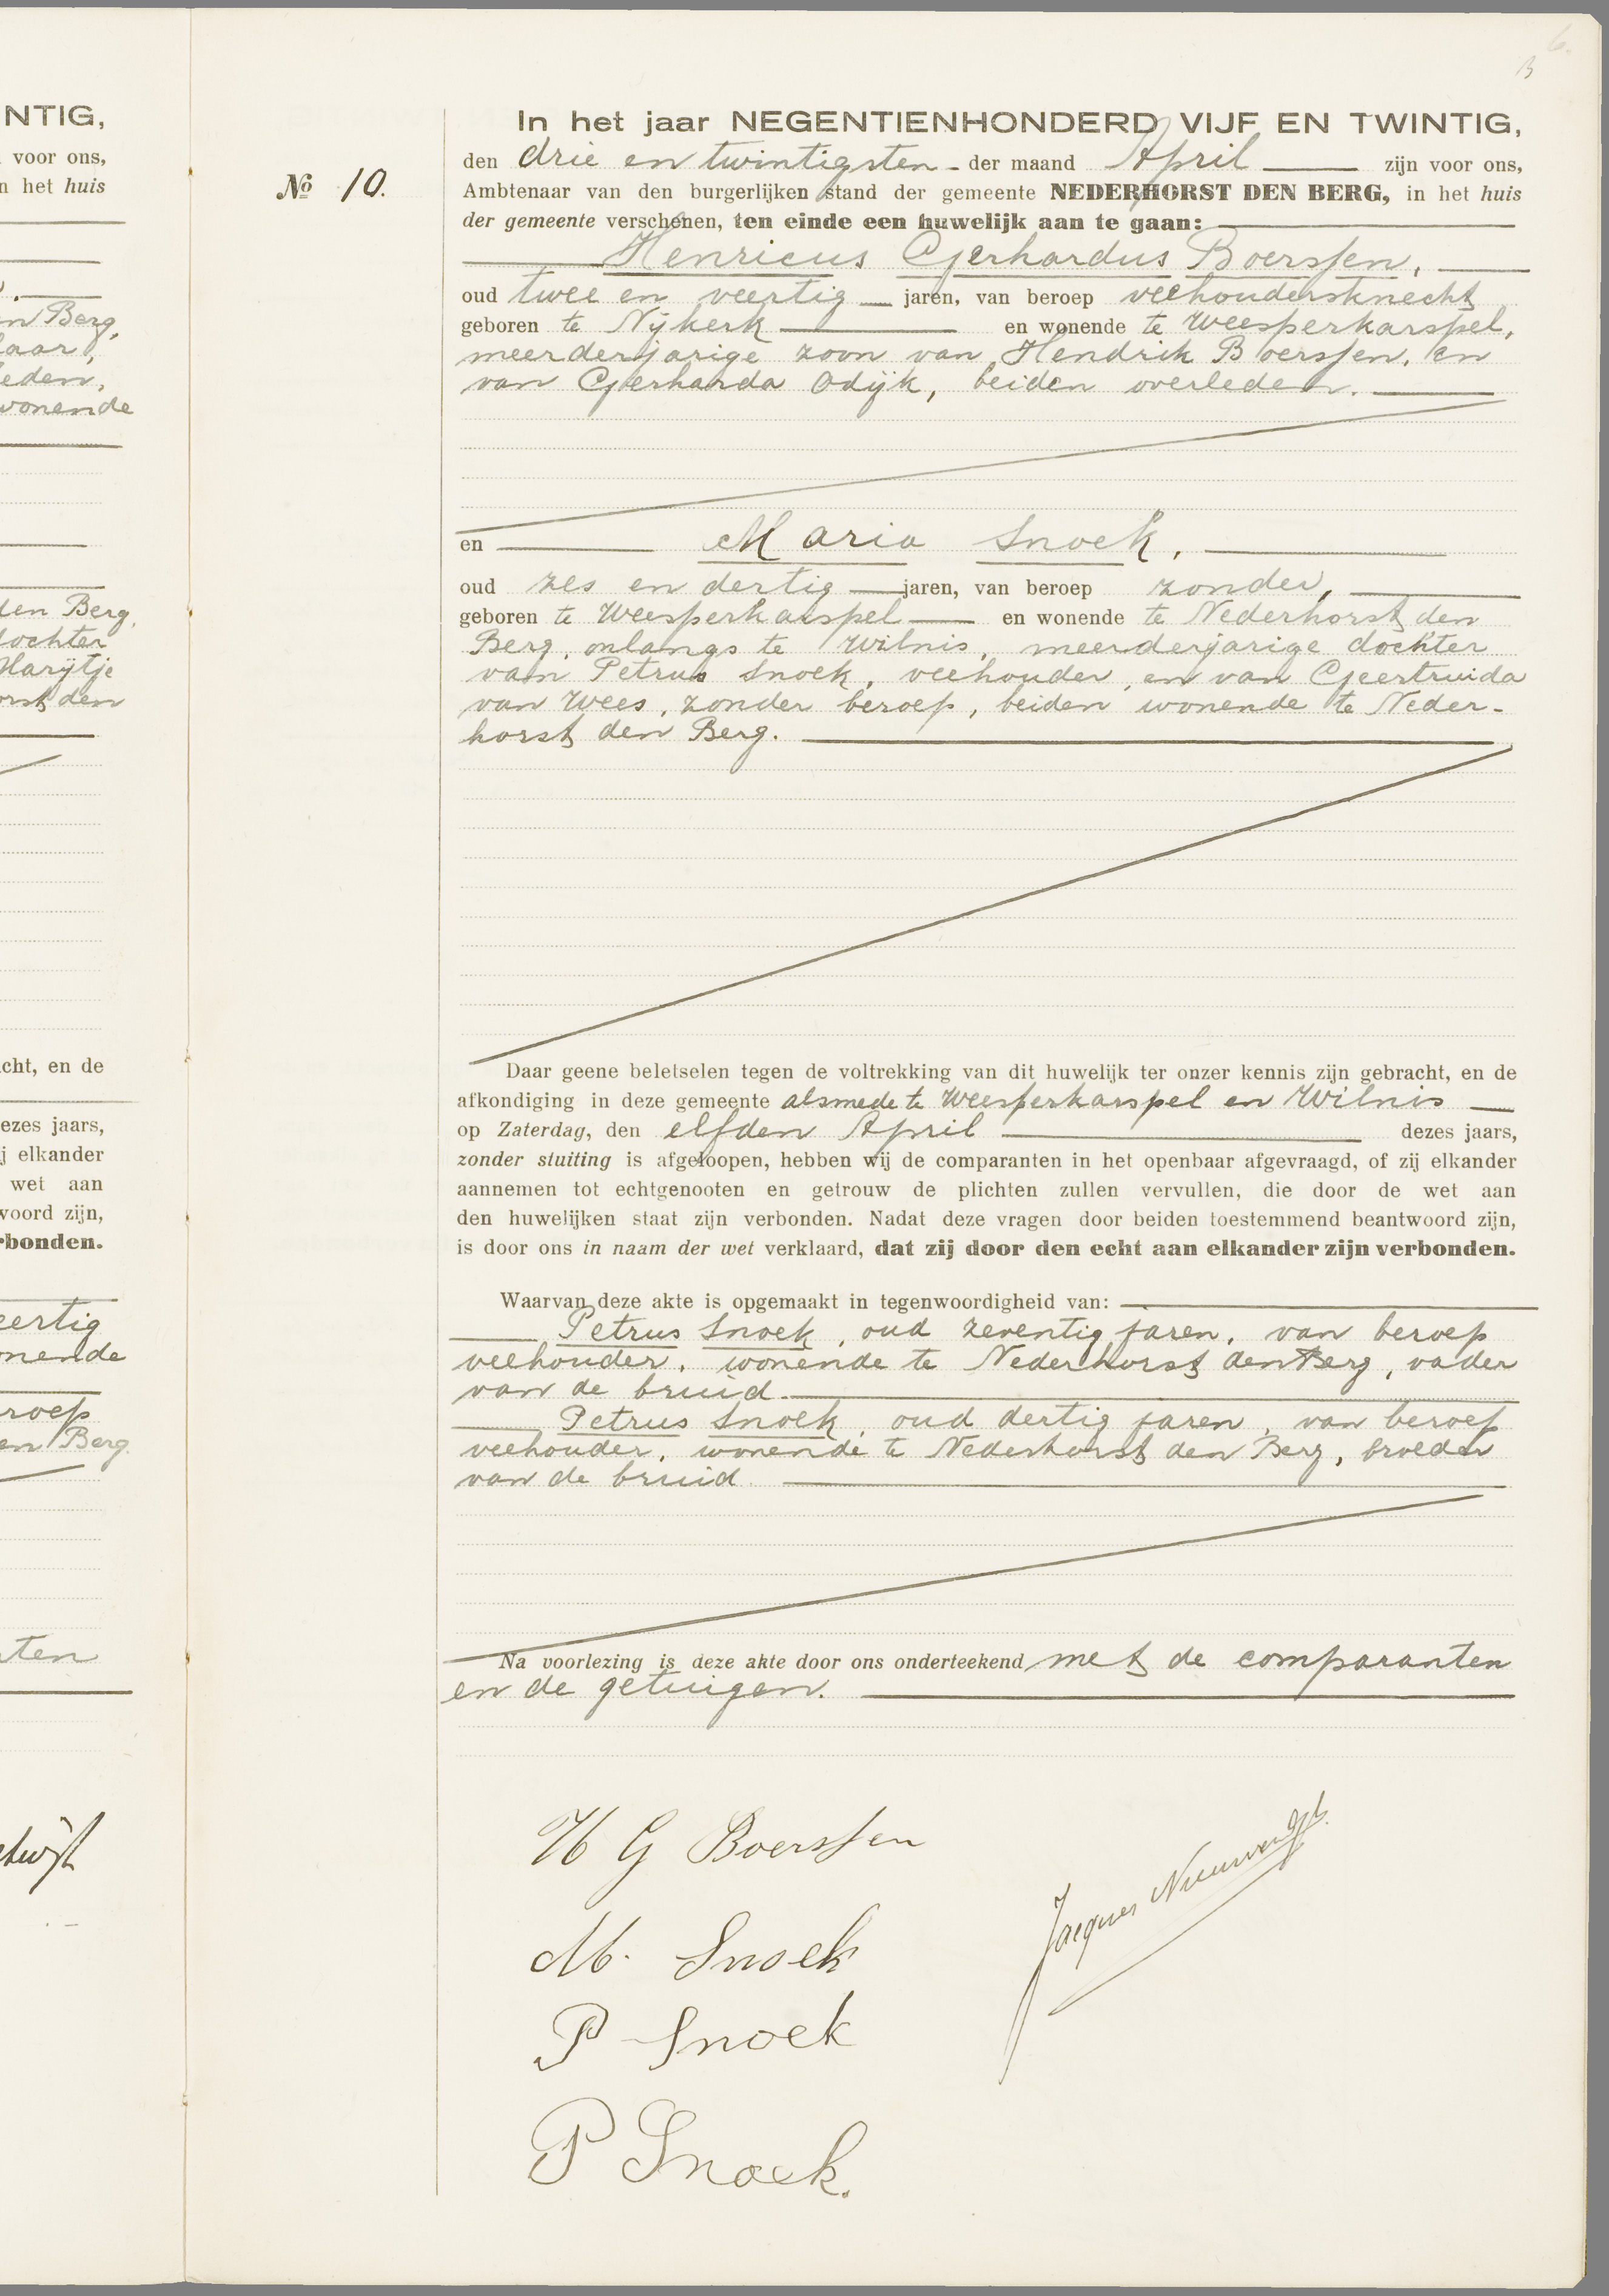 NTIG,
voor ons,
n het huis
n Berg,
laar,
eden,
wonende
den Berg,
dochter
Marijtje
orst den
cht, en de
ezes jaars,
j elkander
wet aan
woord zijn,
rbonden.
eertig
nende
roep
en Berg.
ten
6.
13
No 10.
In het jaar NEGENTIENHONDERD VIJF EN TWINTIG,
den drie en twintigsten - der maand April zijn voor ons,
Ambtenaar van den burgerlijken stand der gemeente NEDERHORST DEN BERG, in het huis
der gemeente verschenen, ten einde een huwelijk aan te gaan:
Henricus Gerhardus Boerssen,
oud twee en veertig jaren, van beroep veehoudersknecht
geboren te Nijkerk en wonende te Weesperkarspel,
meerderjarige zoon van Hendrik Boerssen, en
van Gerharda Odijk, beiden overleden.
en Maria Snoek,
oud zes en dertig jaren, van beroep zonder,
geboren te Weesperkarspel en wonende te Nederhorst den
Berg, onlangs te Wilnis, meerderjarige dochter
van Petrus Snoek, veehouder, en van Geertruida
van Wees, zonder beroep, beiden wonende te Neder-
horst den Berg.
Daar geene beletselen tegen de voltrekking van dit huwelijk ter onzer kennis zijn gebracht, en de
afkondiging in deze gemeente alsmede te Weesperkarspel en Wilnis
op Zaterdag, den elfden April dezes jaars,
zonder stuiting is afgeloopen, hebben wij de comparanten in het openbaar afgevraagd, of zij elkander
aannemen tot echtgenooten en getrouw de plichten zullen vervullen, die door de wet aan
den huwelijken staat zijn verbonden. Nadat deze vragen door beiden toestemmend beantwoord zijn,
is door ons in naam der wet verklaard, dat zij door den echt aan elkander zijn verbonden.
Waarvan deze akte is opgemaakt in tegenwoordigheid van:
Petrus Snoek, oud zeventig jaren, van beroep
veehouder, wonende te Nederhorst den Berg, vader
van de bruid.
Petrus Snoek, oud dertig jaren, van beroep
veehouder, wonende te Nederhorst den Berg, broeder
van de bruid
Na voorlezing is deze akte door ons onderteekend met de comparanten
en de getuigen.
H G Boerssen
Jacques
M. Snoek
P Snoek
P Snoek.